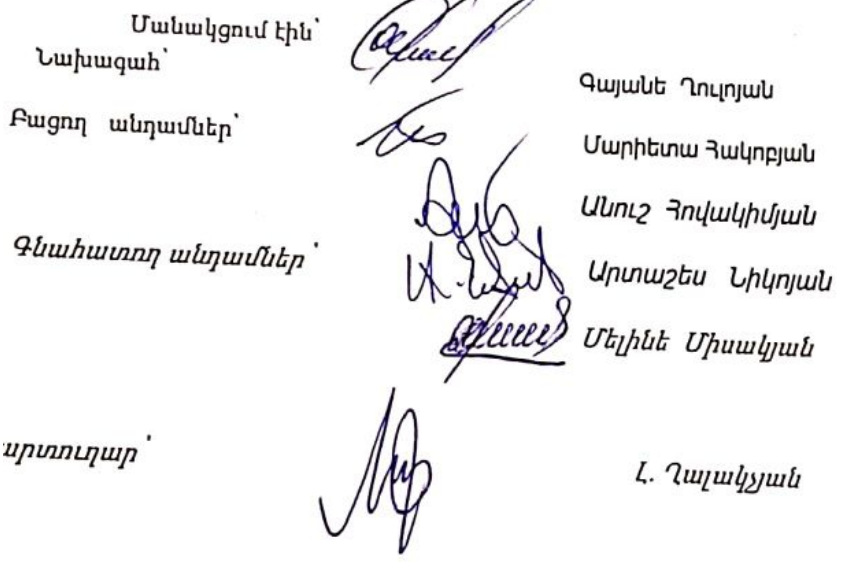 Մանակցում էին՝
Նախագահ՝ Գայանե Ղուլոյան
Բացող անդամներ՝ Մարիետա Հակոբյան
Անուշ Հովակիմյան
Գնահատող անդամներ՝ Արտաշես Նիկոյան
Մելինե Միսակյան
արտուղար՝ Լ. Ղալակչյան